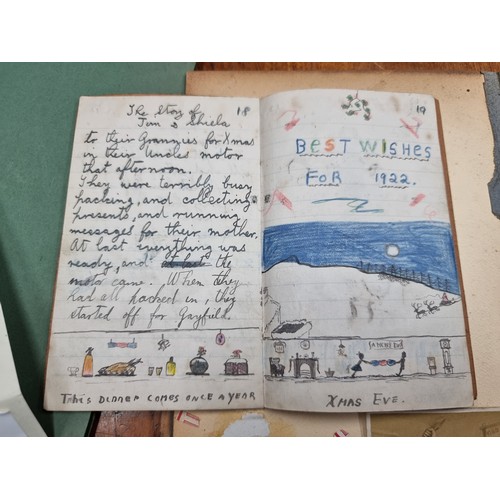 The Story of 18
Tom & Shiela
to their Grannies for Xmas
in their Uncles motor
that afternoon.
They were terribly busy
packing, and collecting
presents, and running
messages for their mother.
At last everything was
ready, and the
motor came. When they
had all packed in, they
started off for Gayfield.
This DINNER COMES ONCE A YEAR
19
BEST WISHES
FOR 1922.
XMAS EVE.